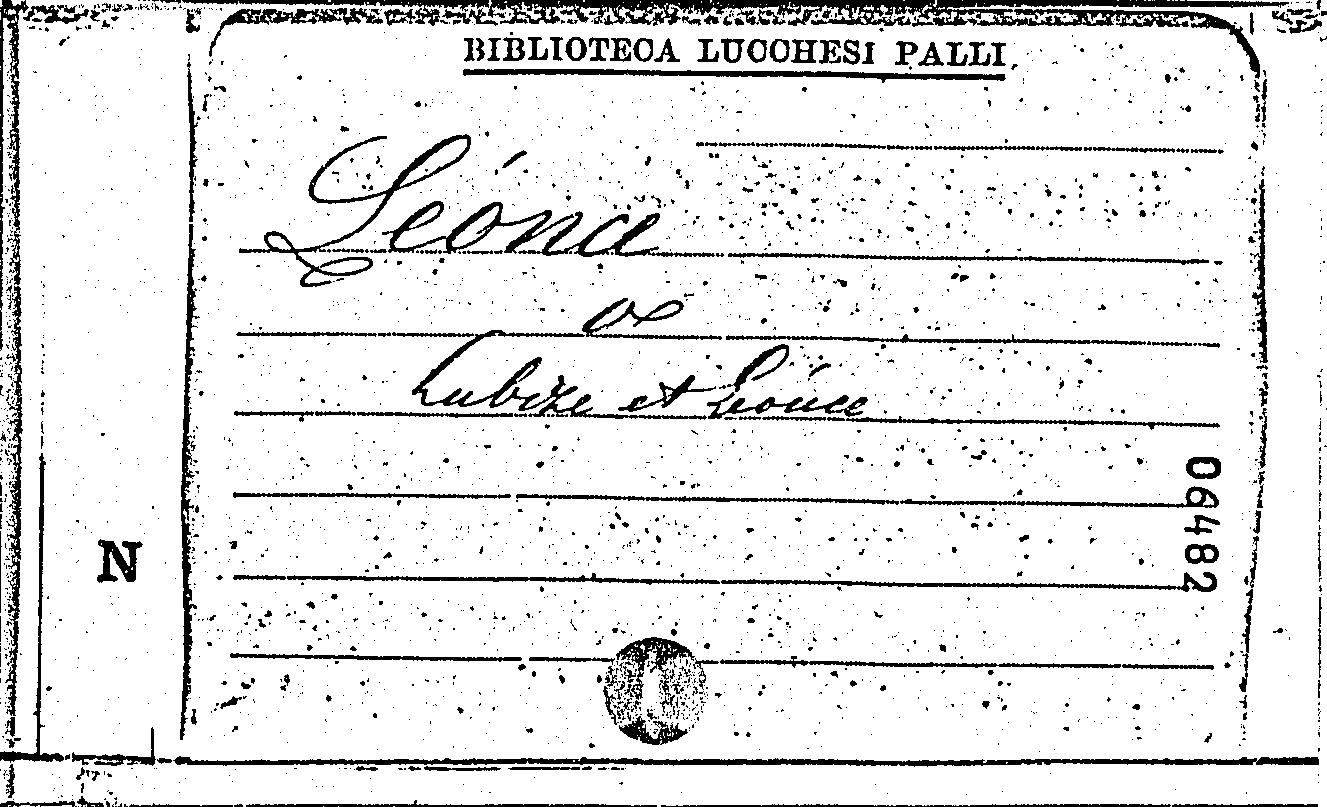 BIBLIOTECA LUCCHESI PALLI
Léonce
V
Lubize et Léonce
N
06482